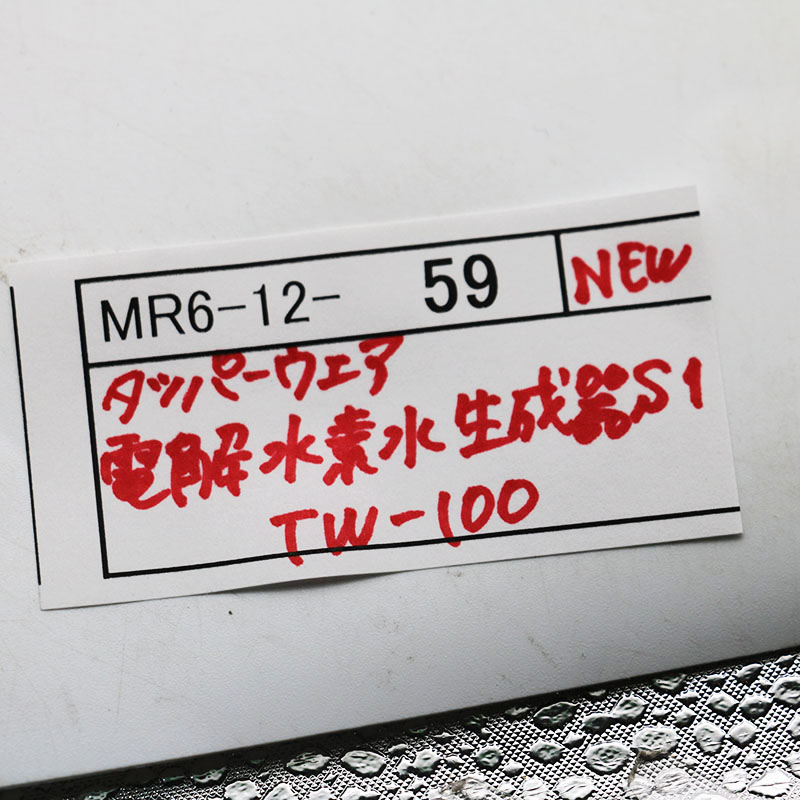 MR6-12- 59 NEW
タッパーウェア
電解水素水生成器S1
TW-100